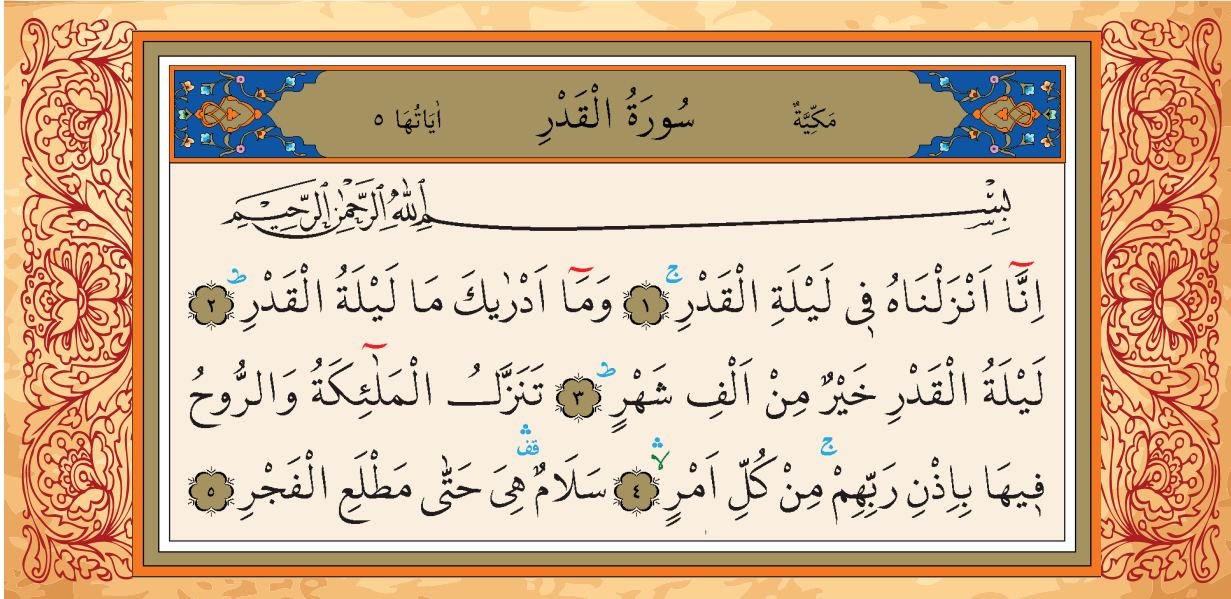 مَكِّيَّةٌ سُورَةُ الْقَدْرِ اٰيَاتُهَا ٥
بِسْمِ اللّٰهِ الرَّحْمٰنِ الرَّحِيمِ
اِنَّٓا اَنْزَلْنَاهُ فٖى لَيْلَةِ الْقَدْرِۚ ﴿١﴾ وَمَٓا اَدْرٰيكَ مَا لَيْلَةُ الْقَدْرِؕ ﴿٢﴾
لَيْلَةُ الْقَدْرِ خَيْرٌ مِنْ اَلْفِ شَهْرٍؕ ﴿٣﴾ تَنَزَّلُ الْمَلٰٓئِكَةُ وَالرُّوحُ
فٖيهَا بِاِذْنِ رَبِّهِمْۚ مِنْ كُلِّ اَمْرٍۙۛ ﴿٤﴾ سَلَامٌ۠ۛ هِىَ حَتّٰى مَطْلَعِ الْفَجْرِ ﴿٥﴾